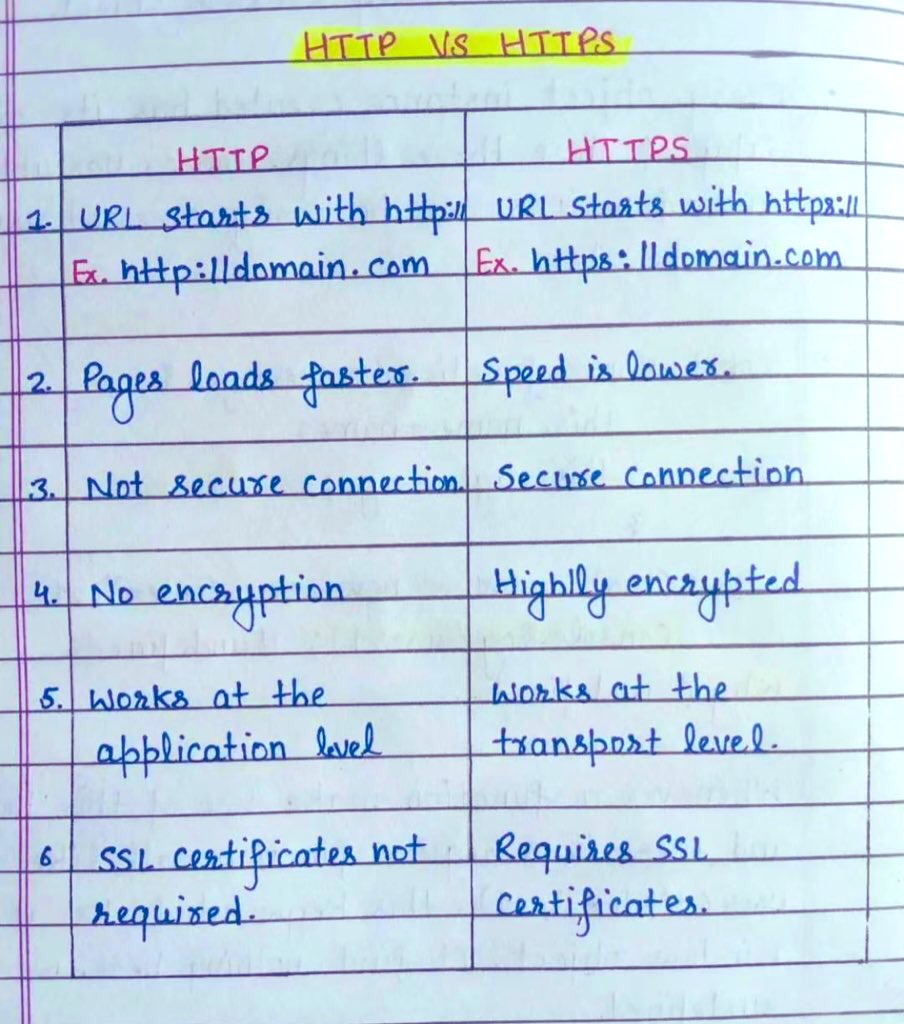 HTTP VS HTTPS
HTTP
HTTPS
1. URL starts with http://
URL starts with https://
Ex. http://domain.com
Ex. https://domain.com
2. Pages loads faster.
Speed is lower.
3. Not secure connection.
Secure connection
4. No encryption
Highlly encrypted
5. Works at the
application level
Works at the
transport level.
6 SSL certificates not
required.
Requires SSL
certificates.